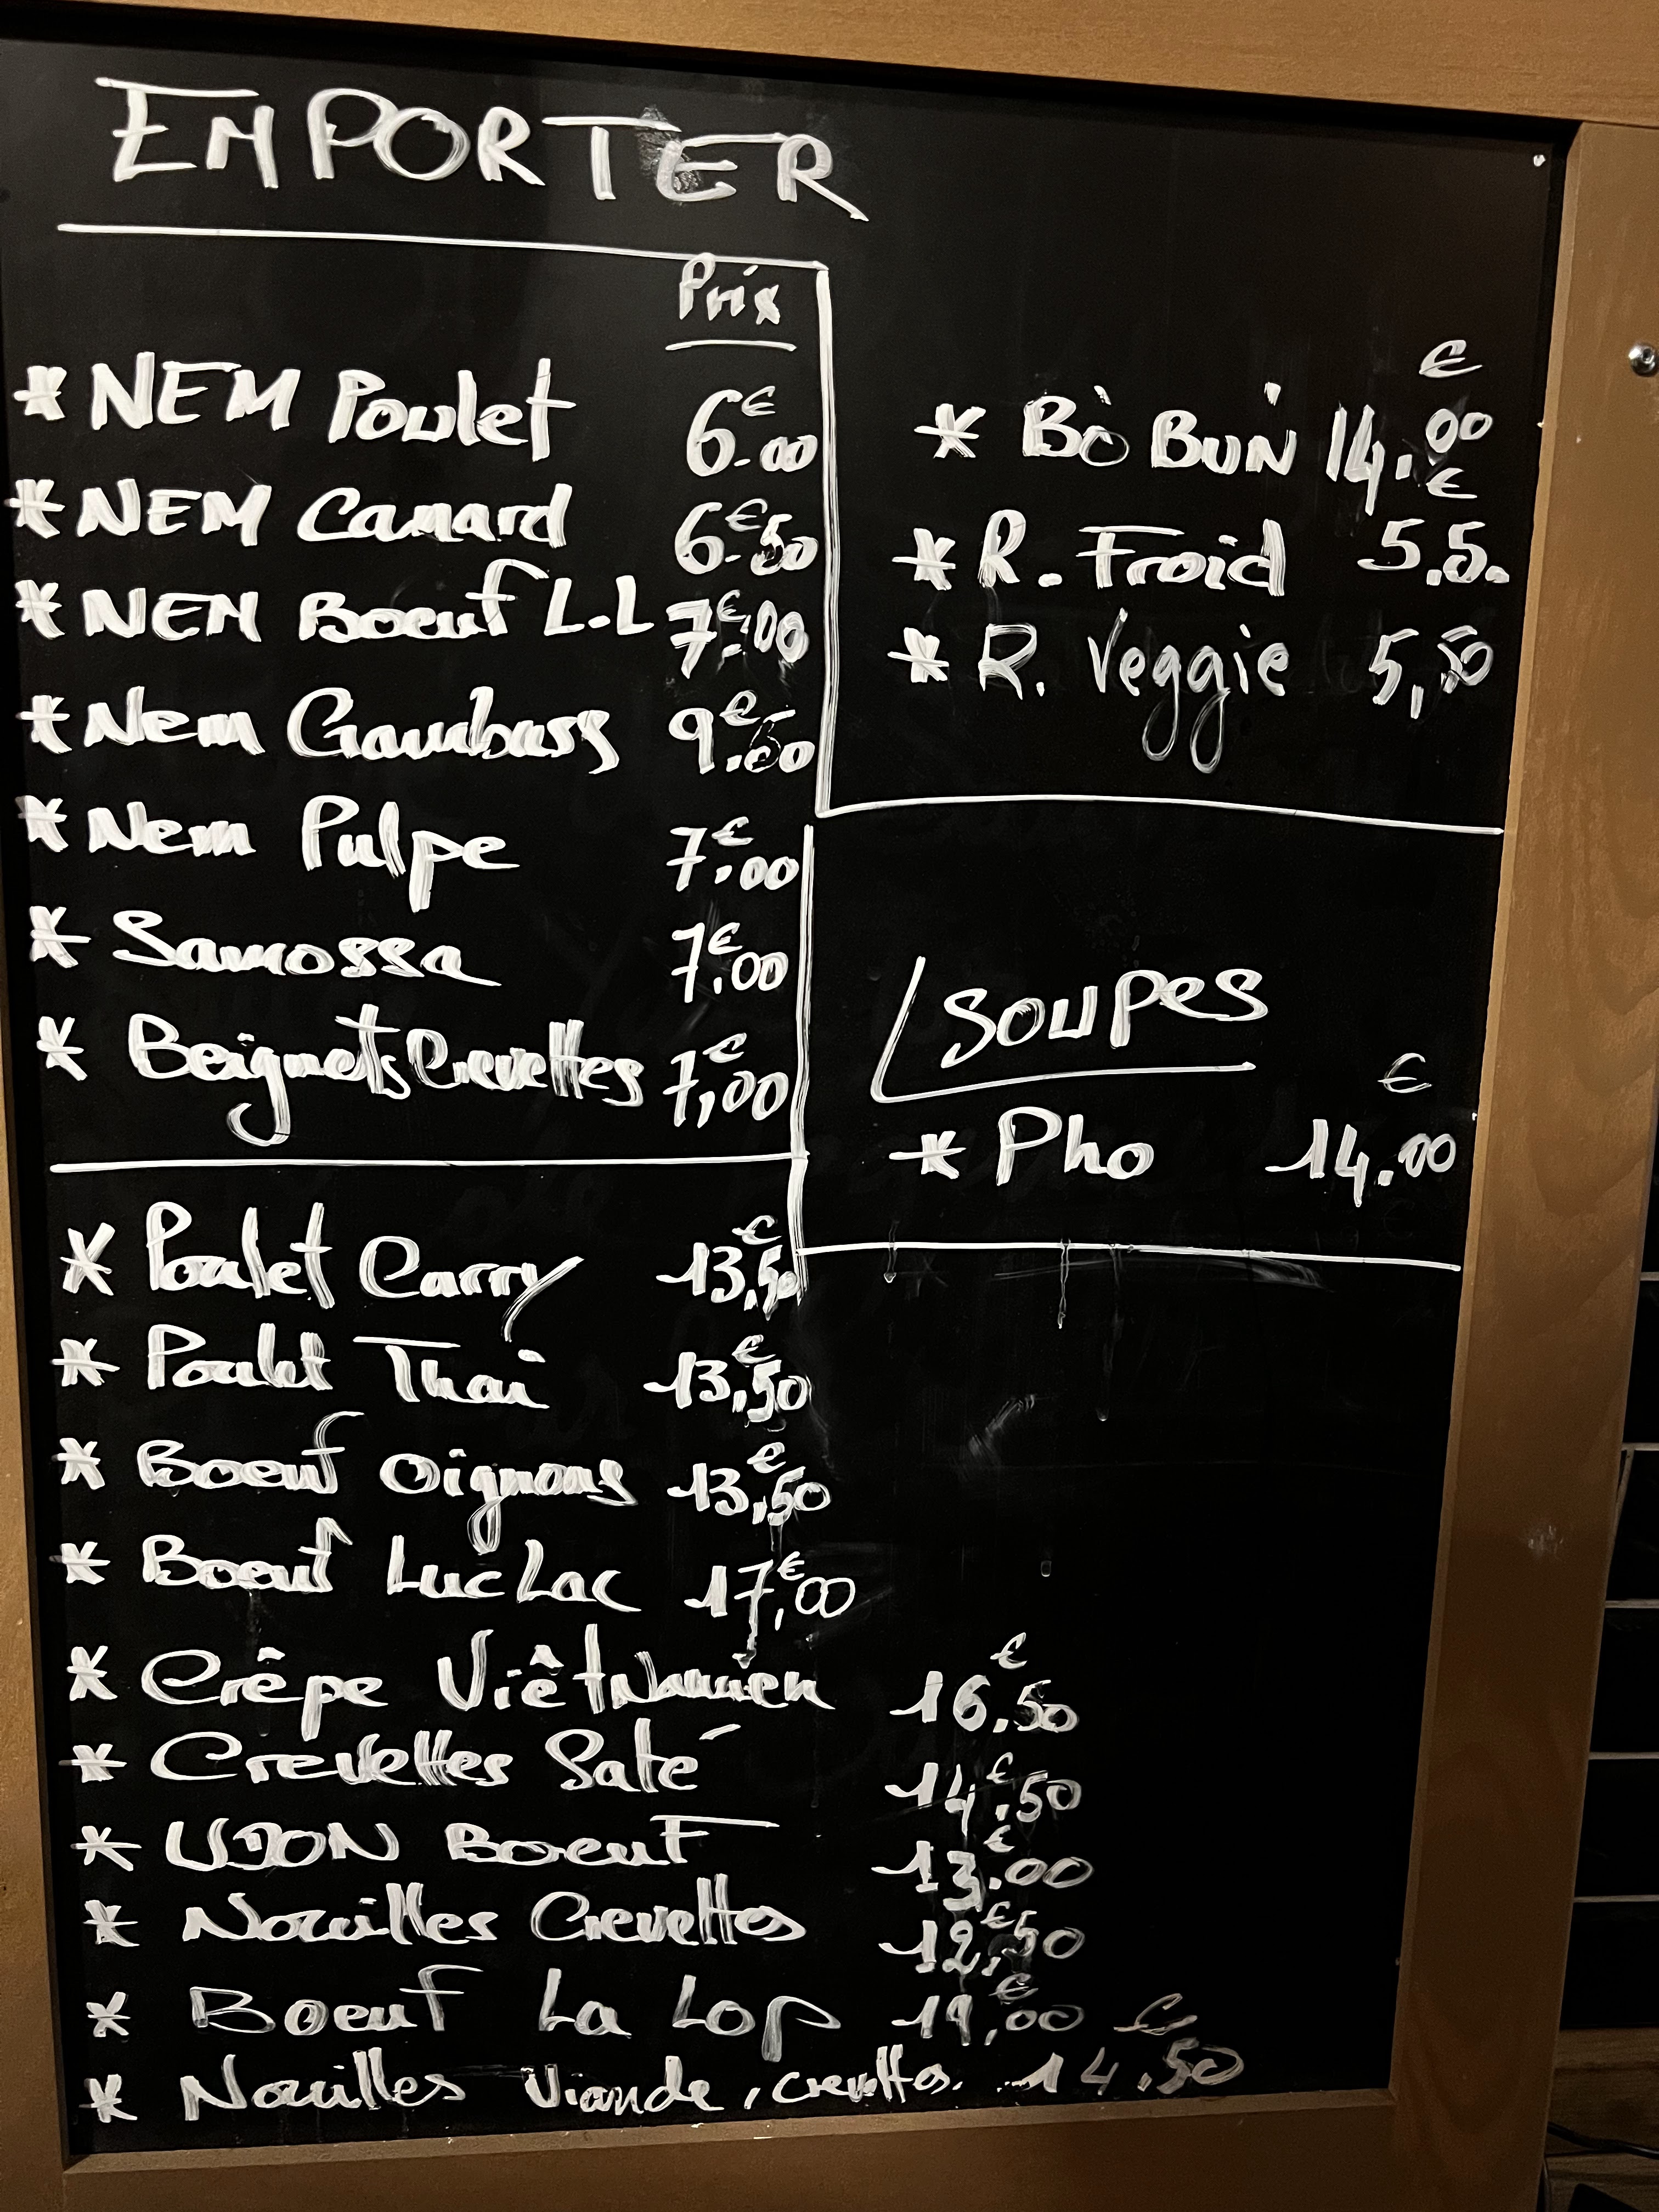 EMPORTER
Prix
* NEM Poulet 6€.00
* NEM Canard 6€.50
* NEM Boeuf L.L 7€.00
* Nem Gambass 9€.60
* Nem Pulpe 7€.00
* Samossa 7€.00
* Beignets Crevettes 7,€00
* Bò BUN 14.€00
* R. Froid 5.5.€
* R. Veggie 5,50
SOUPES
* Pho 14.€00
* Poulet Carry 13,€50
* Poulet Thai 13,€50
* Boeuf Oignons 13,€50
* Boeuf Luc Lac 17,€00
* Crêpe Viêt Namien 16.€50
* Crevettes Saté 14.€50
* UDON BOEUF 13.€00
* Nouilles Crevettes 12,€50
* Boeuf La Lop 19,€00
* Nouilles Viande, crevettes. 14.€50